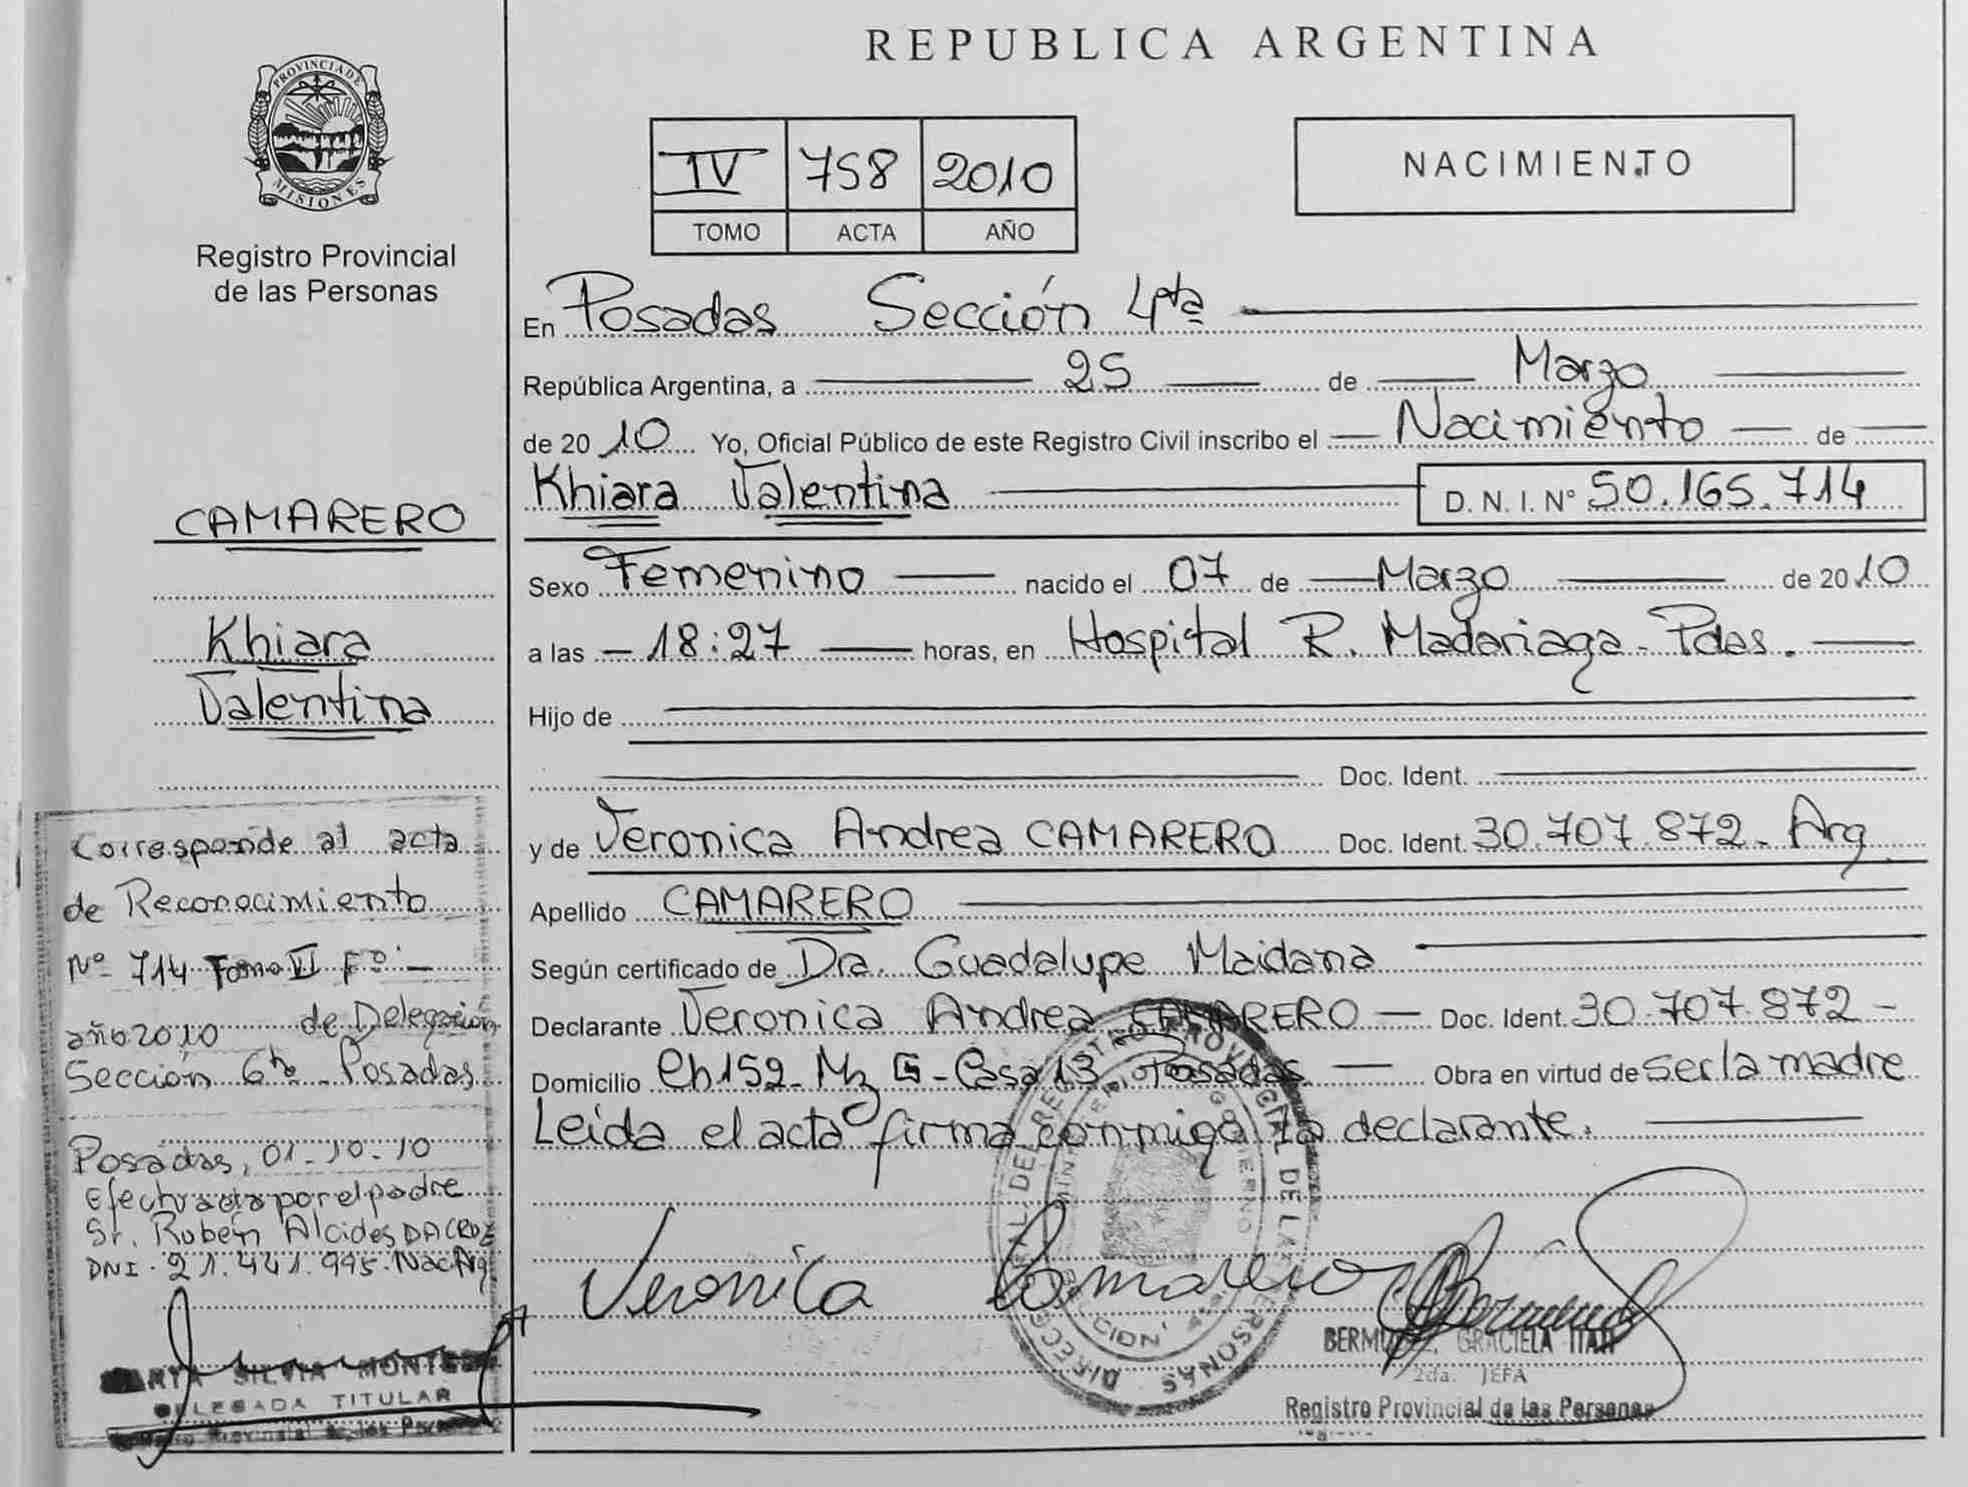 PROVINCIA DE
MISIONES
Registro Provincial
de las Personas
CAMARERO
Khiara
Valentina
Corresponde al acta
de Reconocimiento
Nº 714 Tomo VI Fº -
año 2010 de Delegación
Sección 6ta Posadas
Posadas, 01-10-10
Efectuada por el padre
Sr. Ruben Alcides DA CRUZ
DNI. 21.441.995. Nac Arg
SILVIA
DELEGADA TITULAR
REPUBLICA ARGENTINA
IV 758 2010
TOMO ACTA AÑO
NACIMIENTO
En Posadas Sección 4ta
República Argentina, a 25 de Marzo
de 2010 Yo, Oficial Público de este Registro Civil inscribo el Nacimiento de
Khiara Valentina D. N. I. Nº 50.165.714
Sexo Femenino nacido el 07 de Marzo de 2010
a las 18:27 horas, en Hospital R. Madariaga - Pdas.
Hijo de
Doc. Ident.
y de Veronica Andrea CAMARERO Doc. Ident. 30.707.872- Arg
Apellido CAMARERO
Según certificado de Dra. Guadalupe Maidana
Declarante Veronica Andrea CAMARERO Doc. Ident. 30.707.872-
Domicilio Ch 152- Mz G - Casa 13. Posadas Obra en virtud de ser la madre
Leída el acta firma conmigo la declarante.
Veronica Camarero
GRACIELA
2da. JEFA
Registro Provincial de las Personas